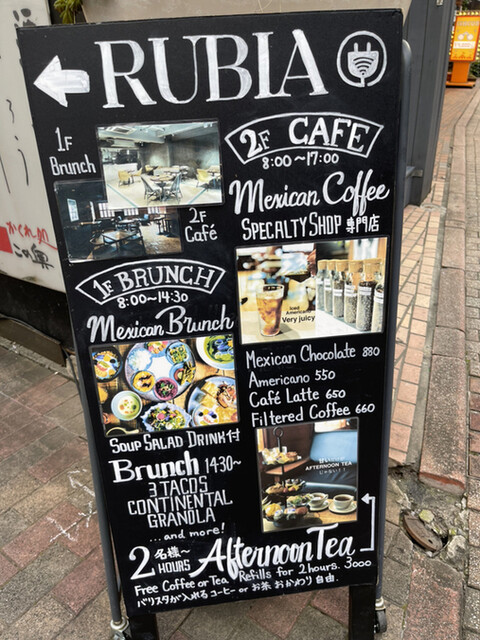 RUBIA
1F
Brunch
2F
Café
2F CAFE
8:00~17:00
Mexican Coffee
SPECIALTY SHOP 専門店
Iced
Americano
Very juicy
Mexican Chocolate 880
Americano 550
Café Latte 650
Filtered Coffee 660
1F BRUNCH
8:00~14:30
Mexican Brunch
SOUP SALAD DRINK 付
Brunch 1430~
3 TACOS
CONTINENTAL
GRANOLA
...and more!
AFTERNOON TEA
2名様~
HOURS
Afternoon Tea
Free Coffee or Tea. Refills for 2 hours. 3000
バリスタが入れるコーヒー or お茶 おかわり自由.